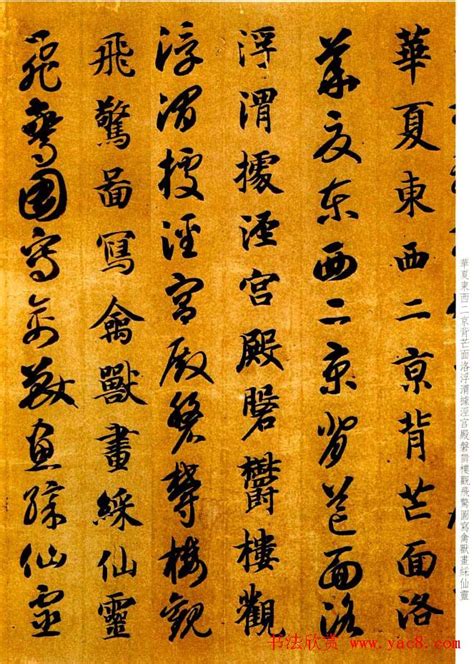 華夏東西二京背芒面洛
華夏東西二京背芒面洛
浮渭據涇宮殿磐欝樓觀
浮渭據涇宮殿磐欝樓觀
飛驚啚寫禽獸畫綵仙靈
飛驚圖寫禽獸畫綵仙靈
華夏東西二京背芒面洛浮渭據涇宮殿磐欝樓觀飛驚圖寫禽獸畫綵仙靈
书法欣赏 www.yac8.com